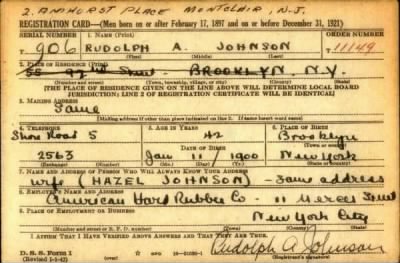 2. AMHURST PLACE MONTCLAIR, N.J.
REGISTRATION CARD—(Men born on or after February 17, 1897 and on or before December 31, 1921)
SERIAL NUMBER 1. NAME (Print) ORDER NUMBER
906 RUDOLPH A. JOHNSON 11149
(First) (Middle) (Last)
2. PLACE OF RESIDENCE (Print)
BROOKLYN. N.Y.
(Number and street) (Town, township, village, or city) (County) (State)
[THE PLACE OF RESIDENCE GIVEN ON THE LINE ABOVE WILL DETERMINE LOCAL BOARD
JURISDICTION; LINE 2 OF REGISTRATION CERTIFICATE WILL BE IDENTICAL]
3. MAILING ADDRESS
Same
[Mailing address if other than place indicated on line 2. If same insert word same]
4. TELEPHONE 5. AGE IN YEARS 6. PLACE OF BIRTH
Shore Road 5 42 Brooklyn
DATE OF BIRTH (Town or county)
2563 Jan 11 1900 New York
(Exchange) (Number) (Mo.) (Day) (Yr.) (State or country)
7. NAME AND ADDRESS OF PERSON WHO WILL ALWAYS KNOW YOUR ADDRESS
wife (HAZEL JOHNSON) — Same address
8. EMPLOYER'S NAME AND ADDRESS
American Hard Rubber Co — 11 Mercer Street
9. PLACE OF EMPLOYMENT OR BUSINESS
New York City
(Number and street or R. F. D. number) (Town) (County) (State)
I AFFIRM THAT I HAVE VERIFIED ABOVE ANSWERS AND THAT THEY ARE TRUE.
D. S. S. Form 1
(Revised 1-1-42) (over)
Rudolph A Johnson
(Registrant's signature)